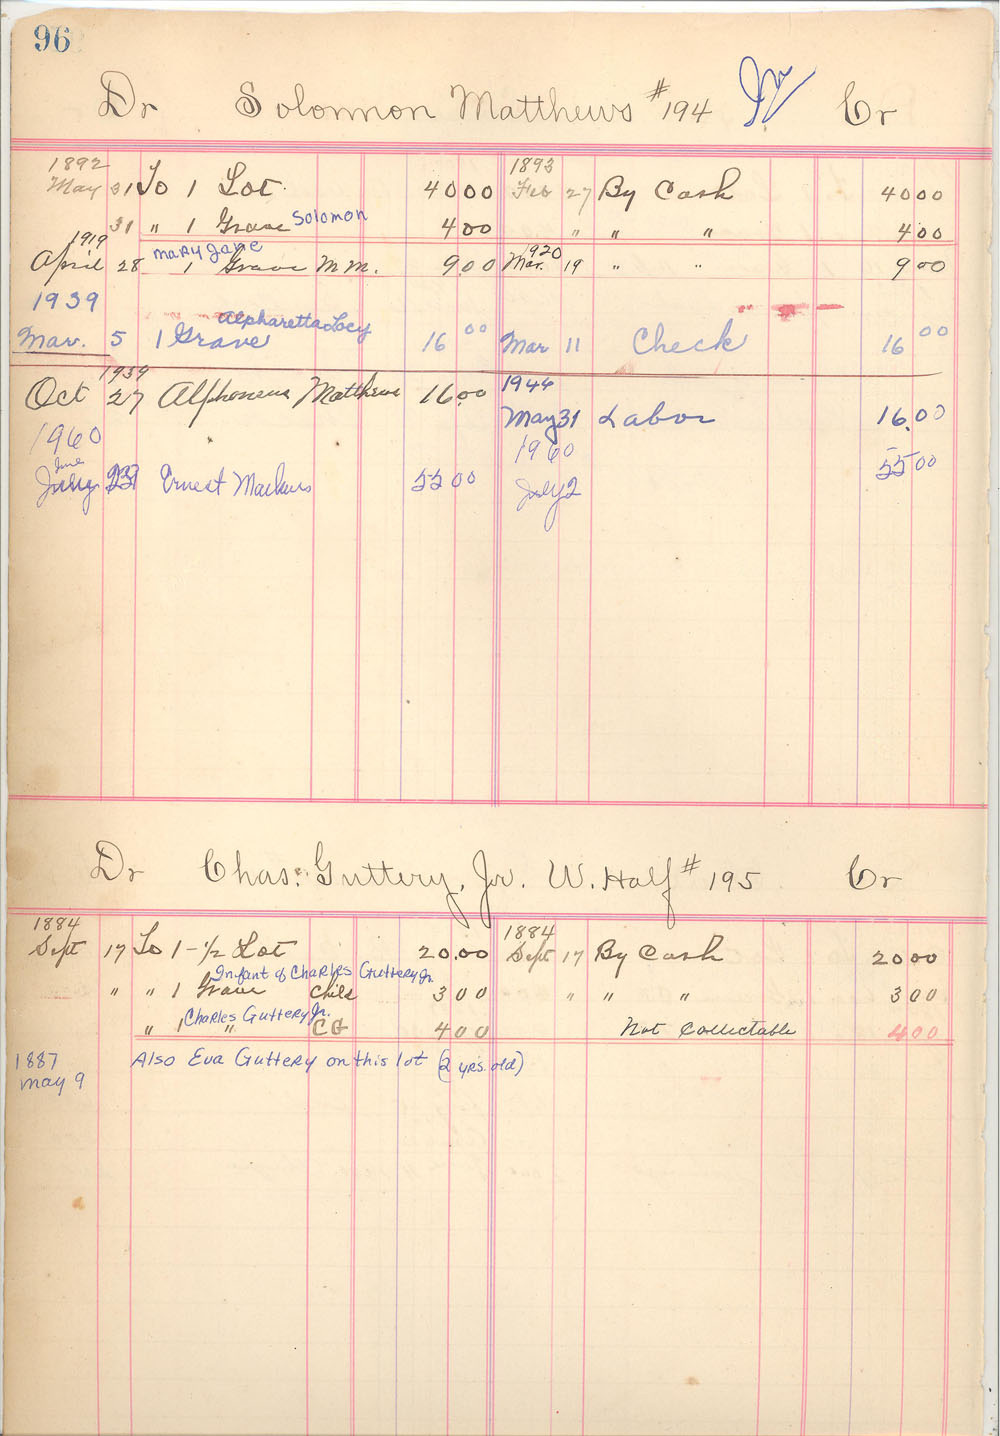 96
Dr Solomon Matthews #194 Cr
1892 1893
May 31 To 1 Lot. 40 00 Feb 27 By Cash 40 00
31 " 1 Grave Solomon 4 00 " " " 4 00
1919 Mary Jane 1920
April 28 1 Grave M M. 9 00 Mar. 19 " " 9 00
1939
Alpharetta Locy
Mar. 5 1 Grave 16 00 Mar 11 Check 16 00
1939 1944
Oct 27 Matthews 16.00
May 31 Labor 16.00
1960 1960
June
July 23 Ernest 55 00 July 2 55 00
Dr Chas. Guttery, Jr. W. Half #195 Cr
1884 1884
Sept 17 To 1-1/2 Lot 20.00 Sept 17 By Cash 20 00
Infant of Charles Guttery Jr.
" " 1 Grave Child 3 00 " " " 3 00
Charles Guttery Jr.
" 1 " C G 4 00 Not Collectable 4 00
1887 Also Eva Guttery on this lot (2 yrs. old)
May 9